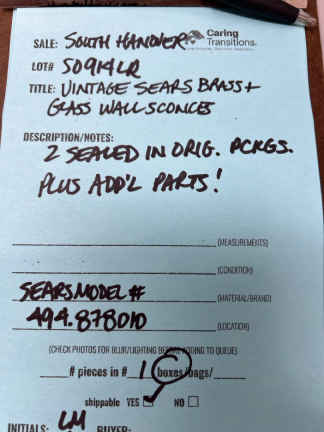 SALE: SOUTH HANOVER Caring Transitions.
LOT# S0914LR
TITLE: VINTAGE SEARS BRASS +
GLASS WALL SCONCES
DESCRIPTION/NOTES:
2 SEALED IN ORIG. PCKGS.
PLUS ADD'L PARTS!
(MEASUREMENTS)
(CONDITION)
SEARS MODEL # (MATERIAL/BRAND)
494.878010 (LOCATION)
(CHECK PHOTOS FOR BLUR/LIGHTING BEFORE ADDING TO QUEUE)
# pieces in # 1 boxes/bags/
shippable YES NO
INITIALS: LM BUYER: